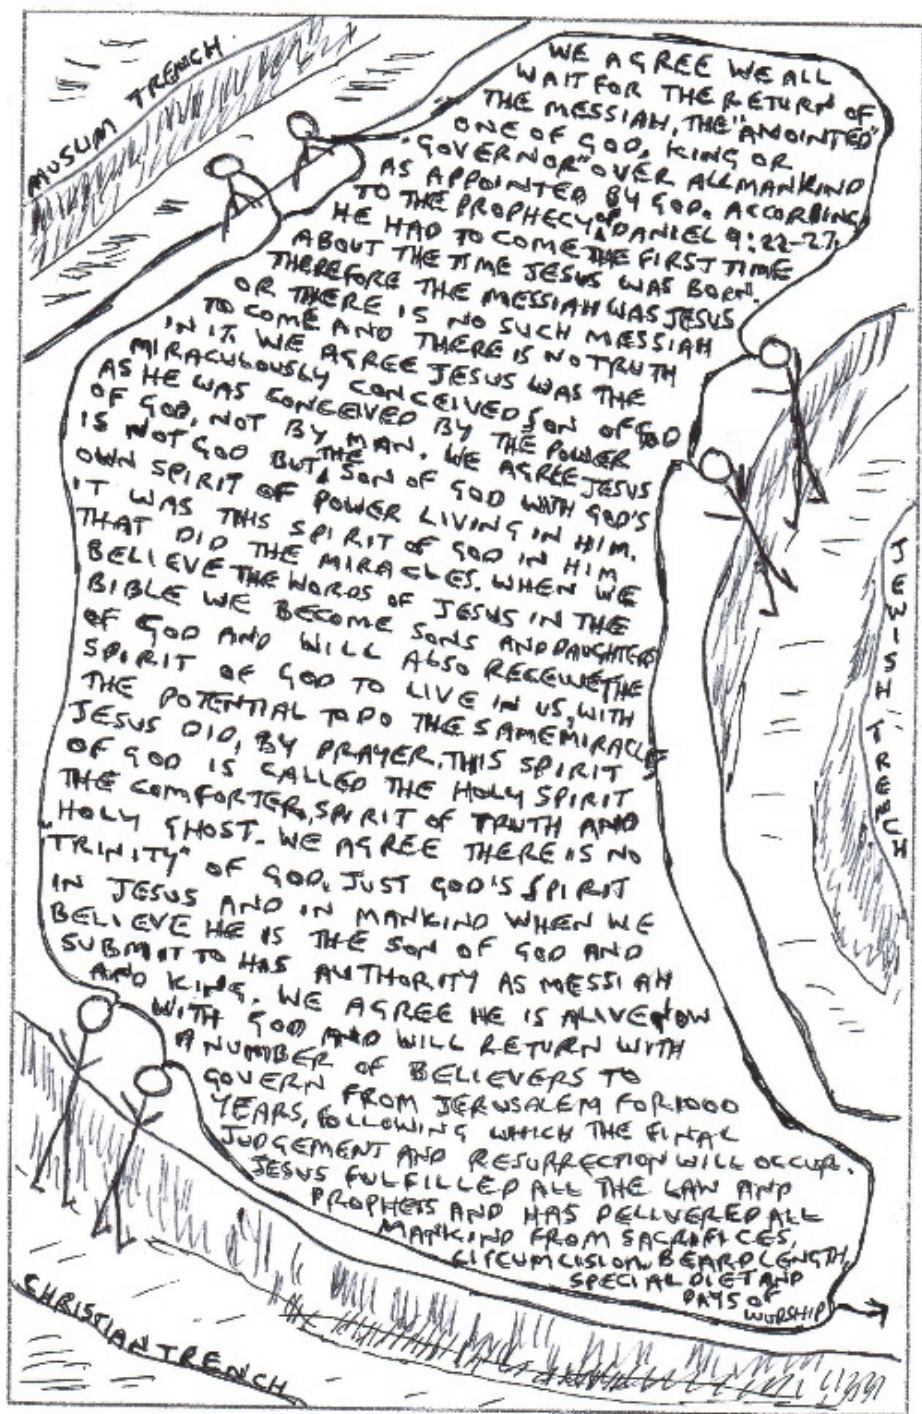 MUSLIM TRENCH.
WE AGREE WE ALL
WAIT FOR THE RETURN OF
THE MESSIAH, THE "ANOINTED"
ONE OF GOD, KING OR
"GOVERNOR" OVER ALL MANKIND
AS APPOINTED BY GOD. ACCORDING
TO THE PROPHECY OF DANIEL 9:22-27,
HE HAD TO COME THE FIRST TIME
ABOUT THE TIME JESUS WAS BORN.
THEREFORE THE MESSIAH WAS JESUS
OR THERE IS NO SUCH MESSIAH
TO COME AND THERE IS NO TRUTH
IN IT. WE AGREE JESUS WAS THE
MIRACULOUSLY CONCEIVED SON OF GOD
AS HE WAS CONCEIVED BY THE POWER
OF GOD, NOT BY MAN. WE AGREE JESUS
IS NOT GOD BUT THE SON OF GOD WITH GOD'S
OWN SPIRIT OF POWER LIVING IN HIM.
IT WAS THIS SPIRIT OF GOD IN HIM
THAT DID THE MIRACLES. WHEN WE
BELIEVE THE WORDS OF JESUS IN THE
BIBLE WE BECOME SONS AND DAUGHTERS
OF GOD AND WILL ALSO RECEIVE THE
SPIRIT OF GOD TO LIVE IN US, WITH
THE POTENTIAL TO DO THE SAME MIRACLES
JESUS DID, BY PRAYER. THIS SPIRIT
OF GOD IS CALLED THE HOLY SPIRIT
THE COMFORTER, SPIRIT OF TRUTH AND
HOLY GHOST. WE AGREE THERE IS NO
"TRINITY" OF GOD, JUST GOD'S SPIRIT
IN JESUS AND IN MANKIND WHEN WE
BELIEVE HE IS THE SON OF GOD AND
SUBMIT TO HAS AUTHORITY AS MESSIAH
AND KING. WE AGREE HE IS ALIVE NOW
WITH GOD AND WILL RETURN WITH
A NUMBER OF BELIEVERS TO
GOVERN FROM JERUSALEM FOR 1000
YEARS, FOLLOWING WHICH THE FINAL
JUDGEMENT AND RESURRECTION WILL OCCUR.
JESUS FULFILLED ALL THE LAW AND
PROPHETS AND HAS DELIVERED ALL
MANKIND FROM SACRIFICES,
CIRCUMCISION, BEARD LENGTH,
SPECIAL DIET AND
DAYS OF
WORSHIP
JEWISH TRENCH
CHRISTIAN TRENCH